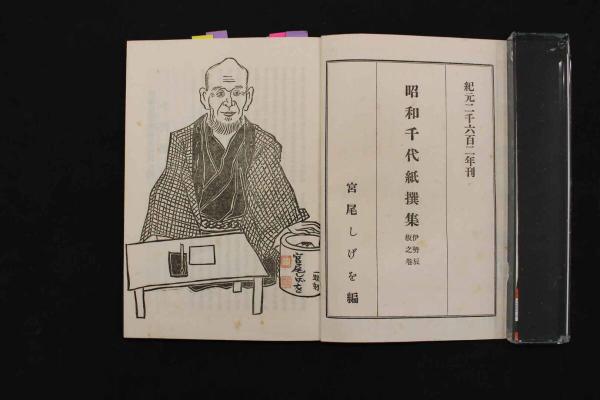 紀元二千六百二年刊
昭和千代紙撰集
伊勢辰
板之巻
宮尾しげを編
宮尾しげを